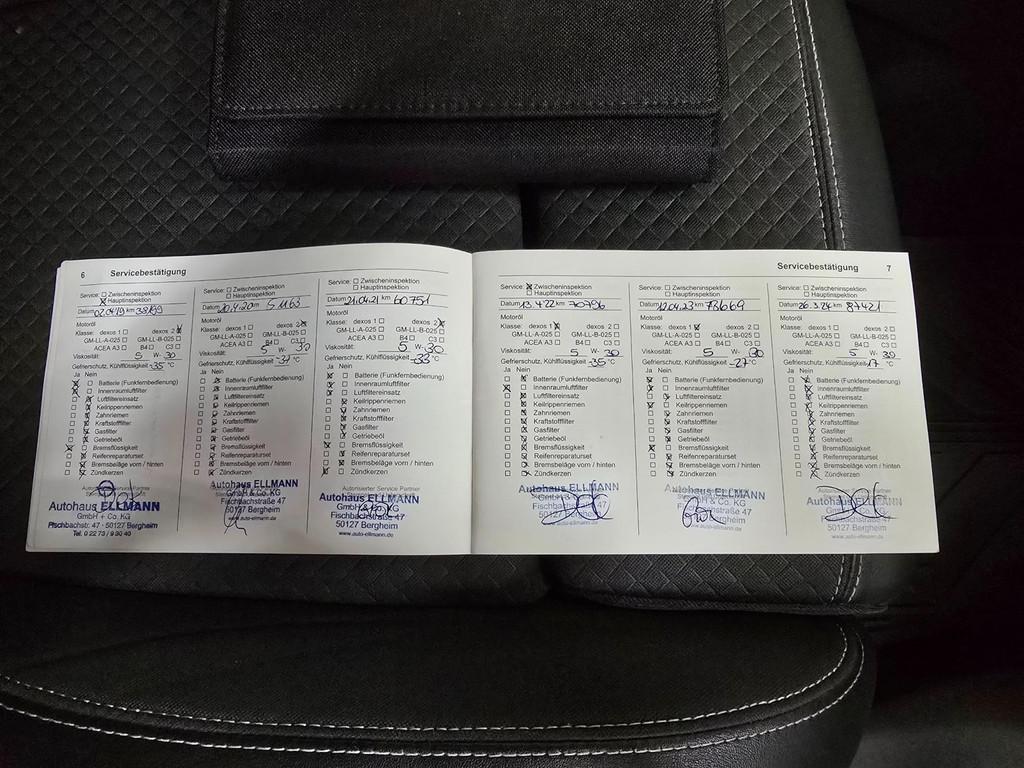 6 Servicebestätigung
Service: Zwischeninspektion
Hauptinspektion
Datum 02.04.19 km 38189
Motoröl
Klasse: dexos 1 dexos 2
GM-LL-A-025 GM-LL-B-025
ACEA A3 B4 C3
Viskosität: 5 W- 30
Gefrierschutz, Kühlflüssigkeit -35 °C
Ja Nein
Batterie (Funkfernbedienung)
Innenraumluftfilter
Luftfiltereinsatz
Keilrippenriemen
Zahnriemen
Kraftstofffilter
Gasfilter
Getriebeöl
Bremsflüssigkeit
Reifenreparaturset
Bremsbeläge vorn / hinten
Zündkerzen
Autohaus ELLMANN
GmbH + Co. KG
Fischbachstr. 47 · 50127 Bergheim
Tel. 0 22 73 / 9 30 40
Service: Zwischeninspektion
Hauptinspektion
Datum 20.4.20 km 51163
Motoröl
Klasse: dexos 1 dexos 2
GM-LL-A-025 GM-LL-B-025
ACEA A3 B4 C3
Viskosität: 5 W- 30
Gefrierschutz, Kühlflüssigkeit -37 °C
Ja Nein
Batterie (Funkfernbedienung)
Innenraumluftfilter
Luftfiltereinsatz
Keilrippenriemen
Zahnriemen
Kraftstofffilter
Gasfilter
Getriebeöl
Bremsflüssigkeit
Reifenreparaturset
Bremsbeläge vorn / hinten
Zündkerzen
Autohaus ELLMANN
GmbH & Co. KG
Fischbachstraße 47
50127 Bergheim
www.auto-ellmann.de
Service: Zwischeninspektion
Hauptinspektion
Datum 21.04.21 km 60751
Motoröl
Klasse: dexos 1 dexos 2
GM-LL-A-025 GM-LL-B-025
ACEA A3 B4 C3
Viskosität: 5 W- 30
Gefrierschutz, Kühlflüssigkeit -33 °C
Ja Nein
Batterie (Funkfernbedienung)
Innenraumluftfilter
Luftfiltereinsatz
Keilrippenriemen
Zahnriemen
Kraftstofffilter
Gasfilter
Getriebeöl
Bremsflüssigkeit
Reifenreparaturset
Bremsbeläge vorn / hinten
Zündkerzen
Autorisierter Service Partner
Autohaus ELLMANN
GmbH & Co. KG
Fischbachstraße 47
50127 Bergheim
www.auto-ellmann.de
Servicebestätigung 7
Service: Zwischeninspektion
Hauptinspektion
Datum 13.4.22 km 70796
Motoröl
Klasse: dexos 1 dexos 2
GM-LL-A-025 GM-LL-B-025
ACEA A3 B4 C3
Viskosität: 5 W- 30
Gefrierschutz, Kühlflüssigkeit -35 °C
Ja Nein
Batterie (Funkfernbedienung)
Innenraumluftfilter
Luftfiltereinsatz
Keilrippenriemen
Zahnriemen
Kraftstofffilter
Gasfilter
Getriebeöl
Bremsflüssigkeit
Reifenreparaturset
Bremsbeläge vorn / hinten
Zündkerzen
Autohaus ELLMANN
GmbH & Co. KG
Fischbachstraße 47
50127 Bergheim
www.auto-ellmann.de
Service: Zwischeninspektion
Hauptinspektion
Datum 12.04.23 km 78669
Motoröl
Klasse: dexos 1 dexos 2
GM-LL-A-025 GM-LL-B-025
ACEA A3 B4 C3
Viskosität: 5 W- 30
Gefrierschutz, Kühlflüssigkeit -27 °C
Ja Nein
Batterie (Funkfernbedienung)
Innenraumluftfilter
Luftfiltereinsatz
Keilrippenriemen
Zahnriemen
Kraftstofffilter
Gasfilter
Getriebeöl
Bremsflüssigkeit
Reifenreparaturset
Bremsbeläge vorn / hinten
Zündkerzen
Autohaus ELLMANN
GmbH & Co. KG
Fischbachstraße 47
50127 Bergheim
www.auto-ellmann.de
Service: Zwischeninspektion
Hauptinspektion
Datum 26.3.24 km 87421
Motoröl
Klasse: dexos 1 dexos 2
GM-LL-A-025 GM-LL-B-025
ACEA A3 B4 C3
Viskosität: 5 W- 30
Gefrierschutz, Kühlflüssigkeit °C
Ja Nein
Batterie (Funkfernbedienung)
Innenraumluftfilter
Luftfiltereinsatz
Keilrippenriemen
Zahnriemen
Kraftstofffilter
Gasfilter
Getriebeöl
Bremsflüssigkeit
Reifenreparaturset
Bremsbeläge vorn / hinten
Zündkerzen
Autohaus ELLMANN
GmbH & Co. KG
Fischbachstraße 47
50127 Bergheim
www.auto-ellmann.de